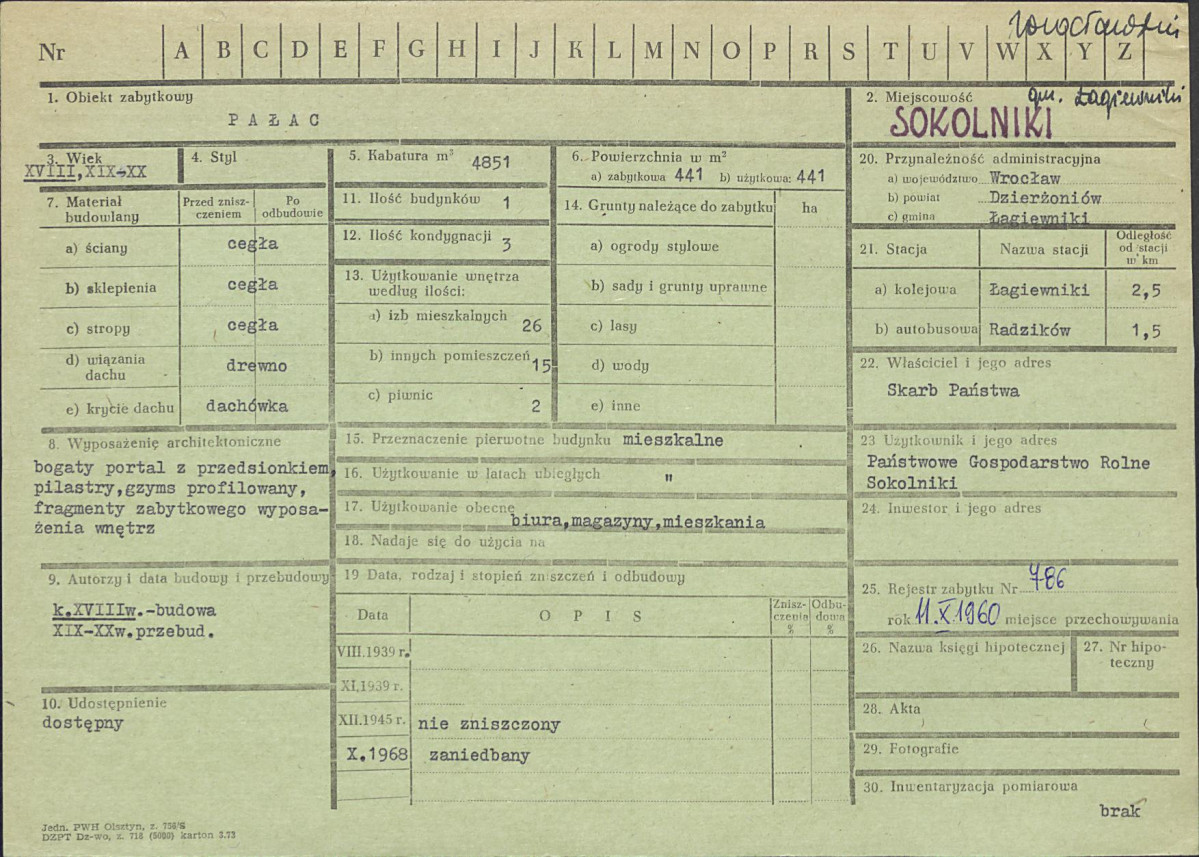 wrocławskie
Nr A B C D E F G H I J K L M N O P R S T U V W X Y Z
1. Obiekt zabytkowy
PAŁAC
2. Miejscowość gm. Łagiewniki
SOKOLNIKI
3. Wiek
XVIII, XIX-XX
4. Styl
5. Kabatura m³ 4851
6. Powierzchnia w m²
a) zabytkowa 441 b) użytkowa: 441
7. Materiał budowlany
Przed zniszczeniem
Po odbudowie
a) ściany cegła
b) sklepienia cegła
c) stropy cegła
d) wiązania dachu drewno
e) krycie dachu dachówka
11. Ilość budynków 1
12. Ilość kondygnacji 3
13. Użytkowanie wnętrza
według ilości:
a) izb mieszkalnych 26
b) innych pomieszczeń 15
c) piwnic 2
14. Grunty należące do zabytku ha
a) ogrody stylowe
b) sady i grunty uprawne
c) lasy
d) wody
e) inne
20. Przynależność administracyjna
a) województwo Wrocław
b) powiat Dzierżoniów
c) gmina Łagiewniki
21. Stacja
Nazwa stacji
Odległość od stacji w km
a) kolejowa Łagiewniki 2,5
b) autobusowa Radzików 1,5
22. Właściciel i jego adres
Skarb Państwa
8. Wyposażenie architektoniczne
bogaty portal z przedsionkiem,
pilastry,gzyms profilowany,
fragmenty zabytkowego wyposa-
żenia wnętrz
15. Przeznaczenie pierwotne budynku mieszkalne
16. Użytkowanie w latach ubiegłych "
17. Użytkowanie obecne
biura,magazyny,mieszkania
18. Nadaje się do użycia na
23 Użytkownik i jego adres
Państwowe Gospodarstwo Rolne
Sokolniki
24. Inwestor i jego adres
9. Autorzy i data budowy i przebudowy
k.XVIIIw.-budowa
XIX-XXw.przebud.
19 Data, rodzaj i stopień zniszczeń i odbudowy
Data
OPIS
Zniszczenie %
Odbudowa %
VIII.1939 r.
XI.1939 r.
XII.1945 r. nie zniszczony
X.1968 zaniedbany
25. Rejestr zabytku Nr 786
rok 11.X.1960 miejsce przechowywania
26. Nazwa księgi hipotecznej
27. Nr hipo-
teczny
10. Udostępnienie
dostępny
28. Akta
29. Fotografie
30. Inwentaryzacja pomiarowa
brak
Jedn. PWH Olsztyn, z. 736/S
DZPT Dz-wo, z. 716 (5000) karton 3.73